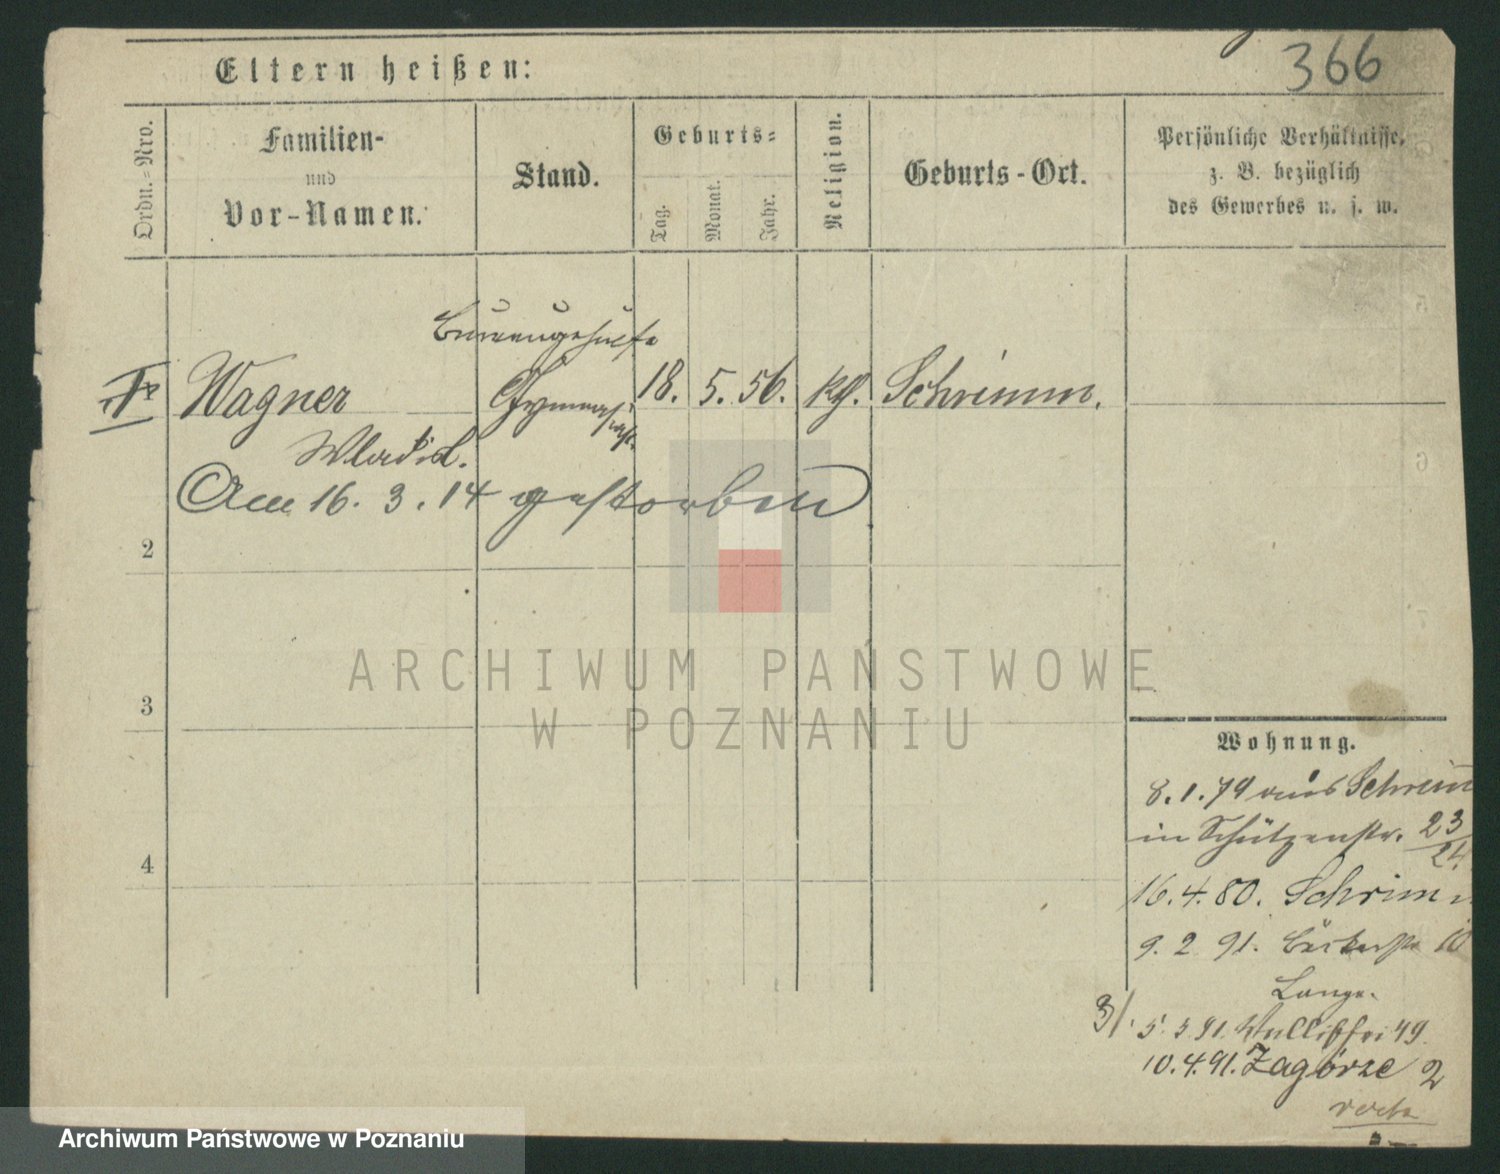 366
Eltern heißen:
Ordn.-Nro.
Familien-
und
Vor-Namen.
Stand.
Geburts-
Tag.
Monat.
Jahr.
Religion.
Geburts-Ort.
Persönliche Verhältnisse,
z. B. bezüglich
des Gewerbes u. s. w.
Bureaugehülfe
Wagner
Gymnasiast.
18. 5. 56. kth. Schrimm.
Wladisl.
Am 16. 3. 14 gestorben
2
3
4
Wohnung.
8.1.79 aus Schrimm
in Schützenstr. 23/24
16.4.80. Schrimm
9. 2 91. Bäckerstr 10
Lange.
3/. 5. 3 91. Wallischei 49.
10.4.91. Zagórze 2
verte
ARCHIWUM PAŃSTWOWE
W POZNANIU
Archiwum Państwowe w Poznaniu